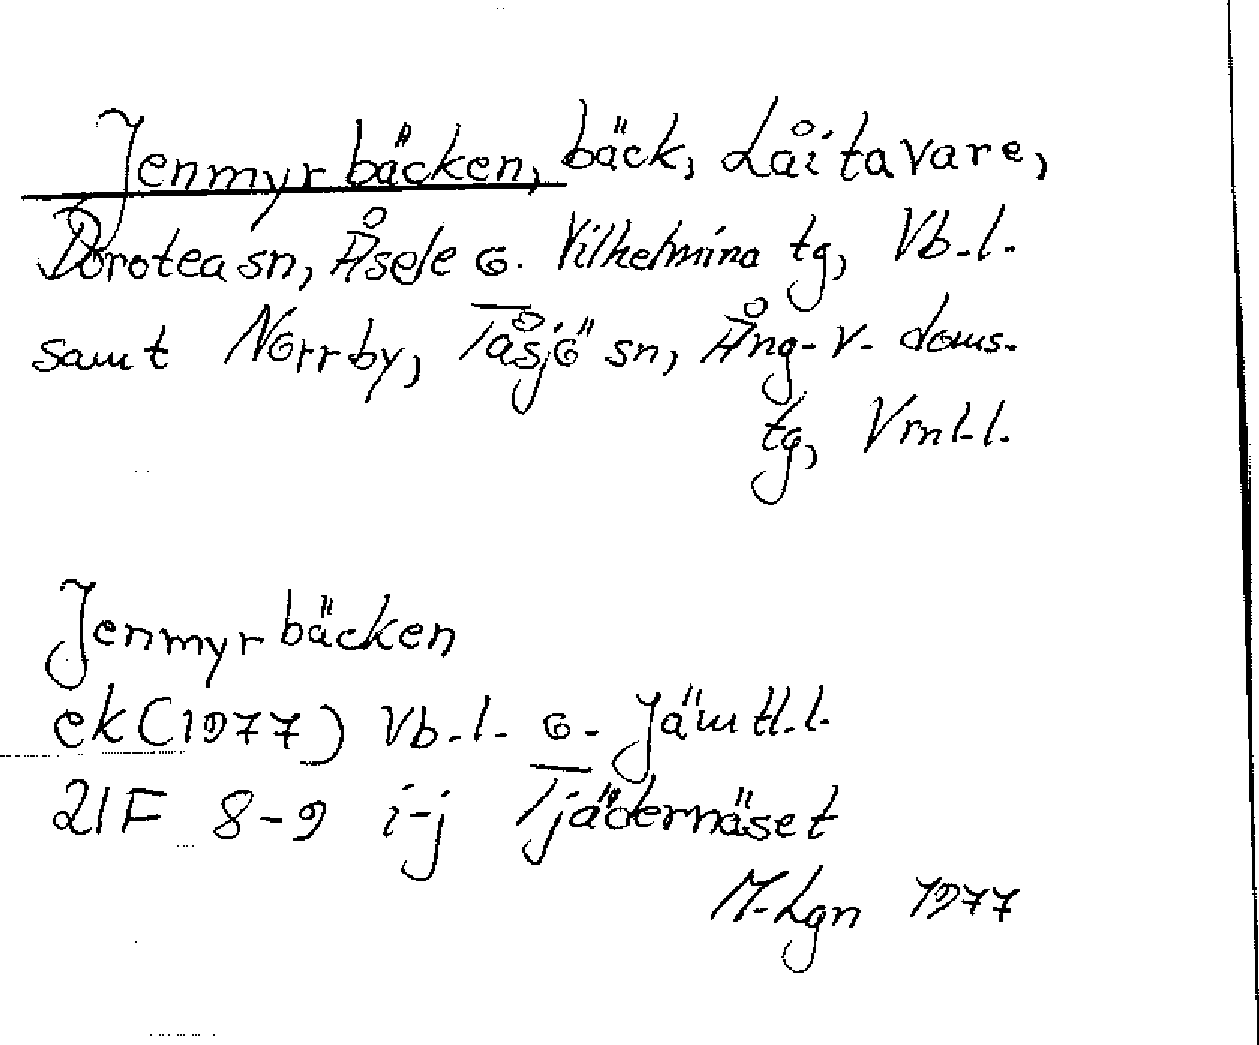 Jenmyrbäcken, bäck, Låitavare,
Dorotea sn, Åsele o. Vilhelmina tg, Vb-l.
samt Norrby, Tåsjö sn, Ång-v-doms.
tg, Vrnl-l.
Jenmyrbäcken
ek(1977) Vb-l. o. Jämtl.l.
21F 8-9 i-j Tjädernäset
M-Lgn 1977